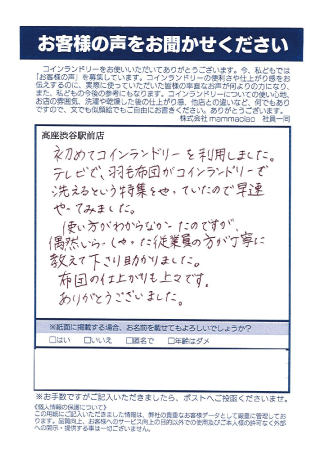 お客様の声をお聞かせください
コインランドリーをお使いいただいてありがとうございます。今、私どもでは
「お客様の声」を募集しています。コインランドリーの便利さや仕上がり感をお
伝えするのに、実際に使っていただいた皆様の率直なお声が何よりの力になり、
また、私どもの今後の参考にもなります。コインランドリーについての使い心地、
お店の雰囲気、洗濯や乾燥した後の仕上がり感、他店との違いなど、何でもあり
ですので、文でも似顔絵でもご自由にお書きください。ありがとうございます。
株式会社 mammaciao 社員一同
高座渋谷駅前店
初めてコインランドリーを利用しました。
テレビで、羽毛布団がコインランドリーで
洗えるという特集をやっていたので早速
やってみました。
使い方がわからなかったのですが、
偶然いらっしゃった従業員の方が丁寧に
教えて下さり助かりました。
布団の仕上がりも上々です。
ありがとうございました。
※紙面に掲載する場合、お名前を載せてもよろしいでしょうか?
□はい □いいえ □匿名で □年齢はダメ
※お手数ですがご記入いただきましたら、ポストへご投函くださいませ。
《個人情報の保護について》
この用紙にご記入いただきました情報は、弊社の貴重なお客様データとして厳重に管理してお
ります。品質向上、お客様へのサービス向上の目的以外での使用及びご本人様の許可なく外部
への開示・提供する事は一切ございません。